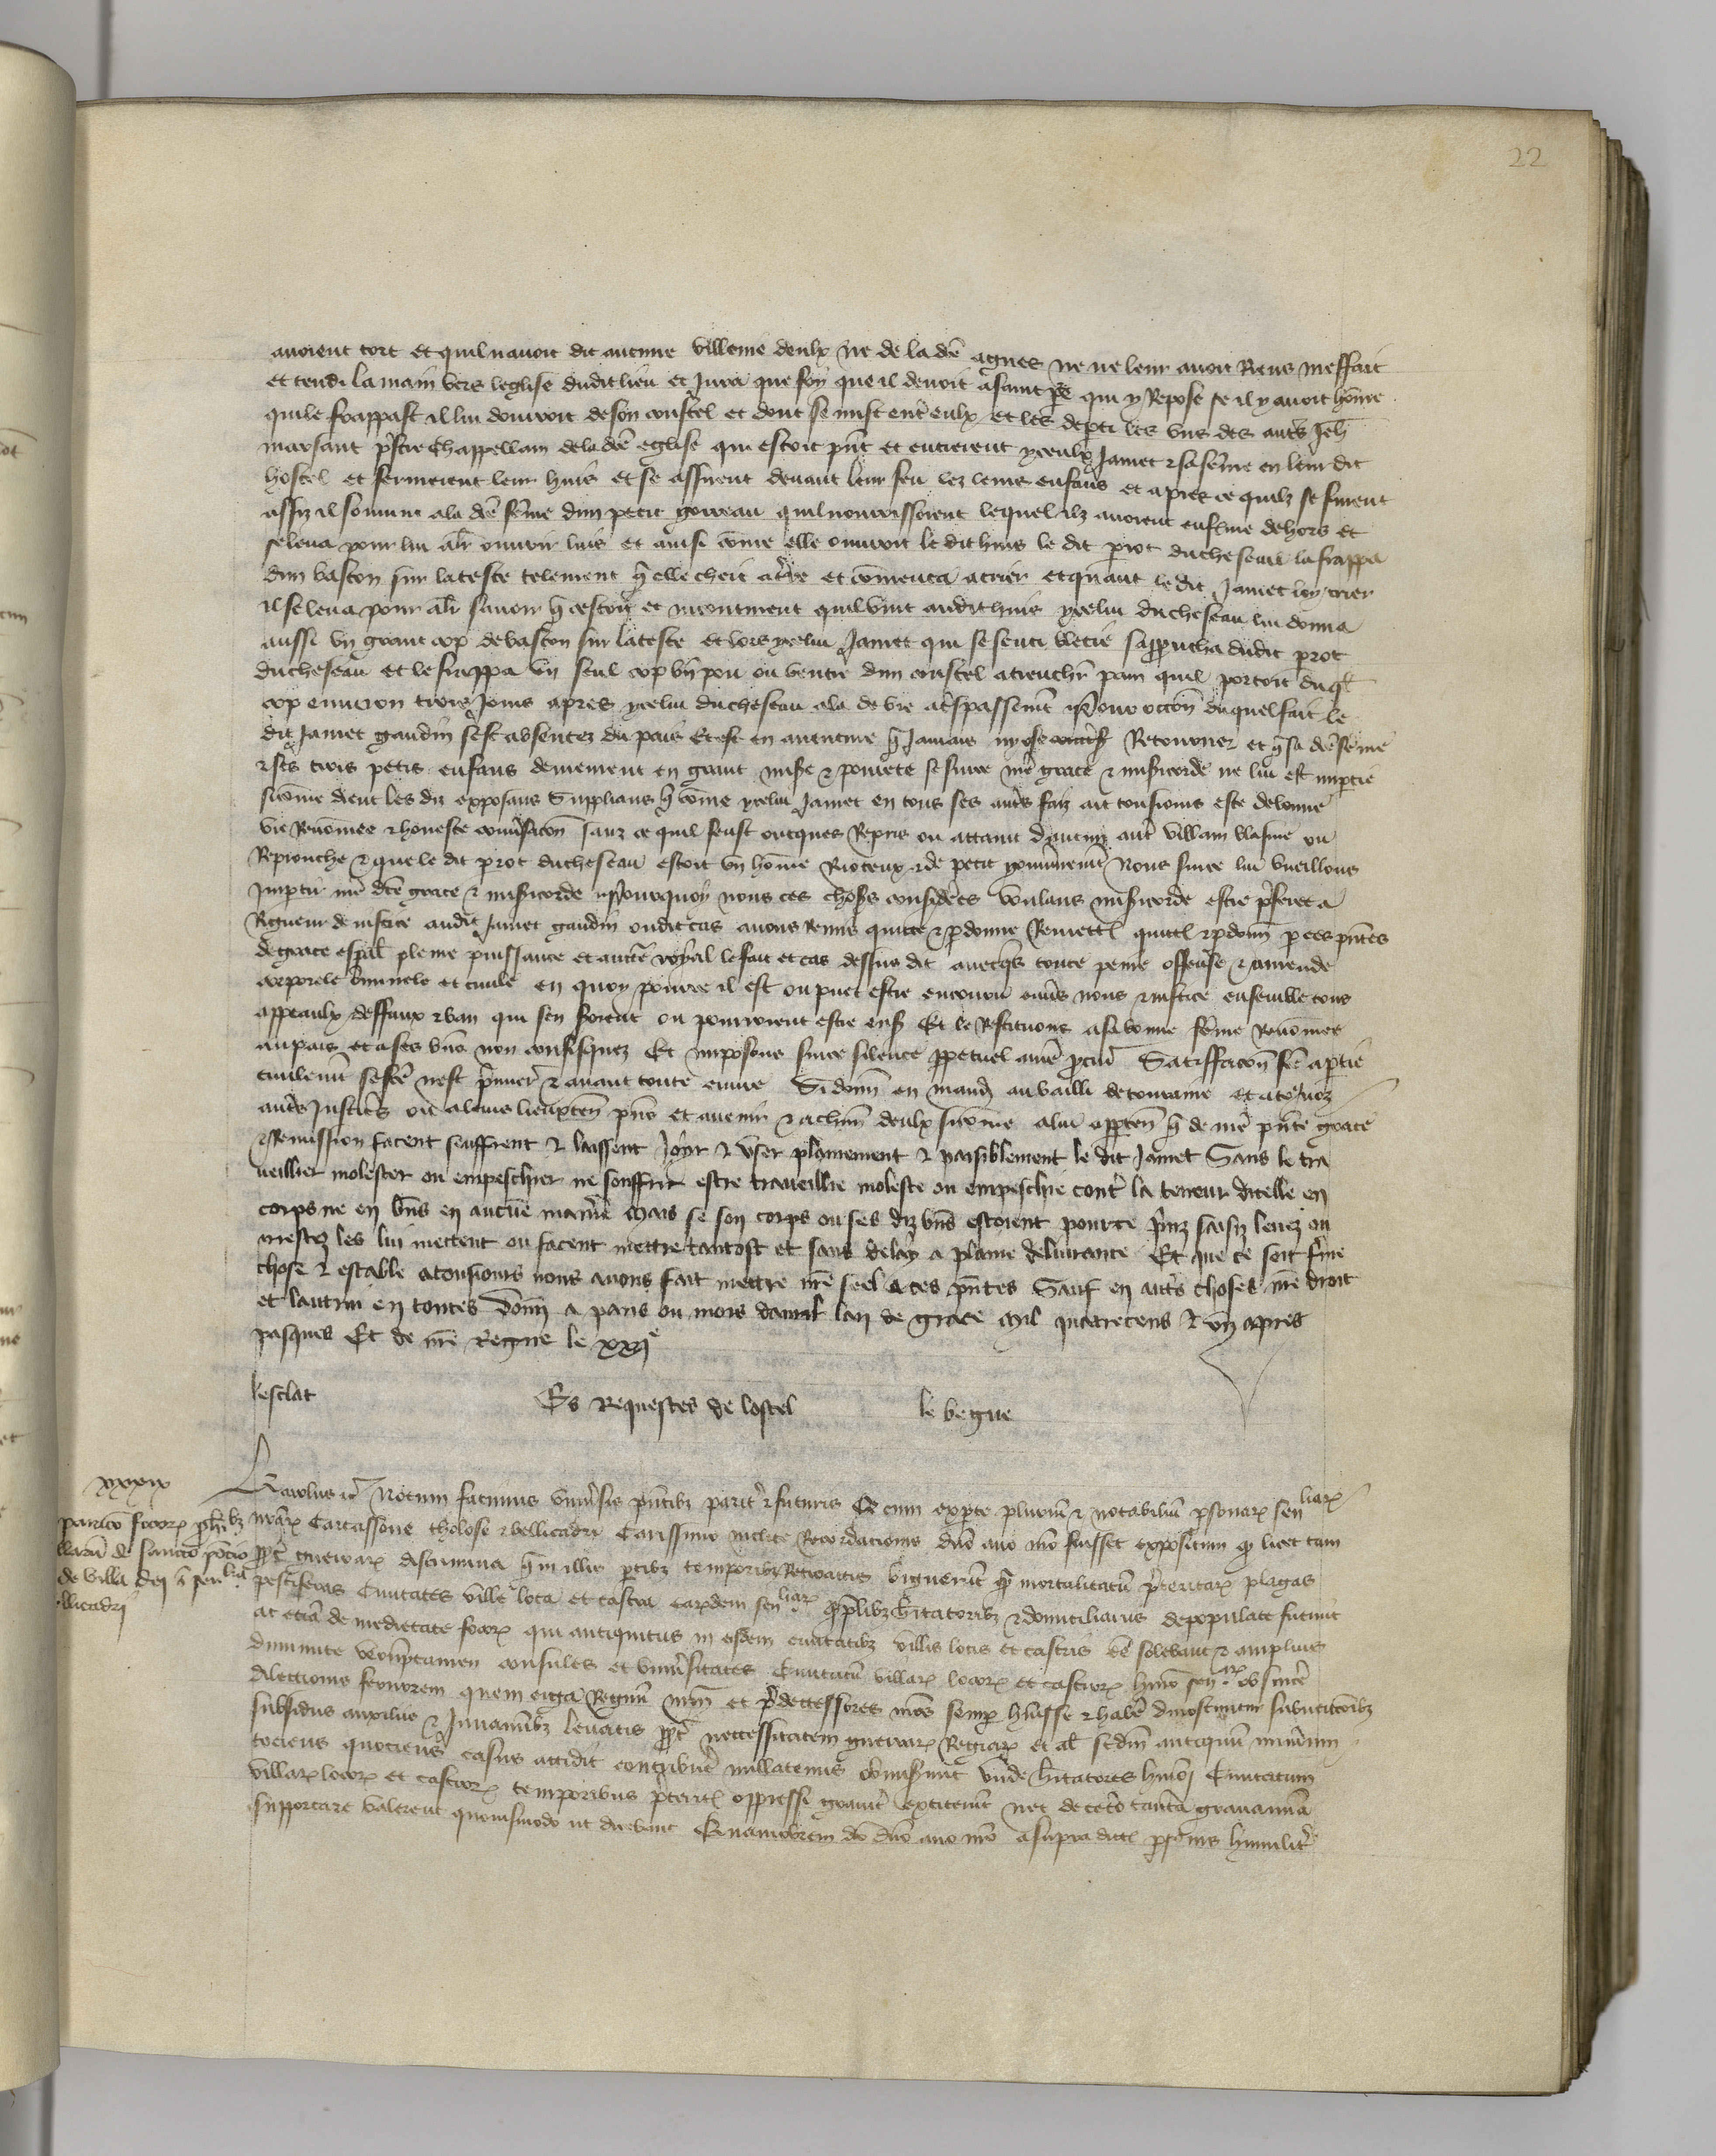 22
avoient tort et quil navoit dit aucune villenie deulx ne de la dce agnes ne ne leur avoit Riens meffait
et tendi la main vers leglise dudit lieu et Jura que foy que il devoit a saint pe qui y Repose se il y avoit home
quile frappast il lui donrroit de son coustel et dont se mist entre eulx et les depti les uns des autrs Jeh
marsant prestre Chappellain dela dce eglise qui estoit pnt et entrerent yceulx Jamet & sa feme en leur dit
hostel et fermerent leur huis et se assirent devant leur feu lez leurs enfans et apres ce quilz se furent
assiz il souvint ala dce feme dun petit gorreau quil nourrissoient lequel ilz avoient enferme dehors et
se leva pour lui aler ouvrir luis et ainsi come elle ouvroit le dit huis le dit prot ducheseau la frappa
dun baston sur la teste telement q elle cheit a tre et comenca a crier et quant le dit Jamet loy crier
il se leva pour aler savoir q cestoit et incontinent quil vint audit huis ycelui ducheseau lui donna
aussi un grant cop de baston sur la teste et lors ycelui Jamet qui se senti blecie sapproucha dudit prot
ducheseau et le frappa un seul cop un pou ou ventre dun coustel a trenchr pain quil portoit duql
cop environ trois Jours apres ycelui ducheseau ala de vie a trespassemt Pour occon duquel fait le
dit Jamet gaudin sest absentez du pais Et est en aventure q Jamais ny ose Retourner et q sa dce feme
& ses trois petis enfans demeurent en grant misere & povrete se sur ce nre grace & misericorde ne lui est impartie
sicome dient les diz exposans Supplians q come ycelui Jamet en tous ses autrs faiz ait tousjours este de bonne
vie Renomee & honeste conversacon sanz ce quil feust oncques Repris ou attaint daucun autr villain blasme ou
Reprouche & que le dit prot ducheseau estoit un home Rioteux & de petit gouvernemt Nous sur ce lui vueillons
Impartir nre dce grace & misericorde Pourquoy nous ces choses considerees voulans misericorde estre preferee a
Rigueur de justice audit Jamet gaudin oudit cas avons Remis quitte & pdonne Remetts quitts & pdonns p ces pntes
de grace espal pleine puissance et aucte royal le fait et cas dessus dit avecqs toute peine offense & amende
corporele criminele et civile en quoy pour ce il est ou puet estre encouru envers nous & justice ensemble tous
appeaulx deffaux & ban qui sen feront ou pourroient estre ens Et le Restituons a sa bonne feme Renomee
au pais et a ses bns non confisquez Et imposons sur ce silence ppetuel a nre pcur Satiffaccon fce a ptie
civilemt se fce nest pmier & avant toute euvre Si donns en mandt au bailli de touraine et a tous noz
autrs Justiciers ou a leurs lieuxten pns et avenir & a chun deulx sicome a lui apprten q de nre pnte grace
& Remission facent seuffrent & laissent Joyr & user plainement & paisiblement le dit Jamet Sans le tra
veillier molester ou empeschier ne souffrir estre travaillie moleste ou empeschie contr la teneur dicelle en
corps ne en bns en aucune manre Mais se son corps ou ses diz bns estoient pour ce prinz saisiz levez ou
arrestez les lui mettent ou facent mettre tantost et sans delay a plaine delivrance Et que ce soit ferme
chose & estable a tousjours nous avons fait mettre nre seel a ces pntes Sauf en autrs choses nre droit
et lautrui en toutes Donn a paris ou mois davril lan de grace Mil quatrecens & un apres
pasques Et de nre Regne le xxje
Jesclat Es Requestes de lostel le begue
xxxix
Karolus &c Notum facimus universis pntibz paritr & futuris Qz cum exparte plurium & notabiliu psonar sen liar
nrar Carcassone tholose & bellicadri Carissimo inclite Recordacionis dno avo nro fuisset expositum q licet tam
ppt guerrar discrimina q in illis ptibz temporibz Retroactis viguerut q mortalitatu preteritar plagas
pestiferas Civitates ville loca et castra eardem sen liar pplibz hitatoribz & domiciliariis depopulate fuerint
ac etia de medietate focor qui antiquitus in eisdem civitatibz villis locis et castris ee solebant & amplius
diminute Verutamen consules et universitates Civitatu villar locor et castror hmoi sen ar ob sincere
dilectionis fervorem quem erga Regnu nrm et predecessores nros semp huisse & habere dinoscuntur subventionibz
subsidiis auxiliis & Juvamibz levatis ppt neccessitatem guerrar Regiar et al scdm antiquu numerum
tociens quociens casus accidit contribuere nullatenus obmiserunt unde hitatores hmoi Civitatum
villar locor et castror temporibus preterits oppressi gravitr extiterut nec de cetero tanta gravamina
supportare valerent quovismodo ut dicebant Quamobrem dco dno avo nro a supradictis psonis humilitr